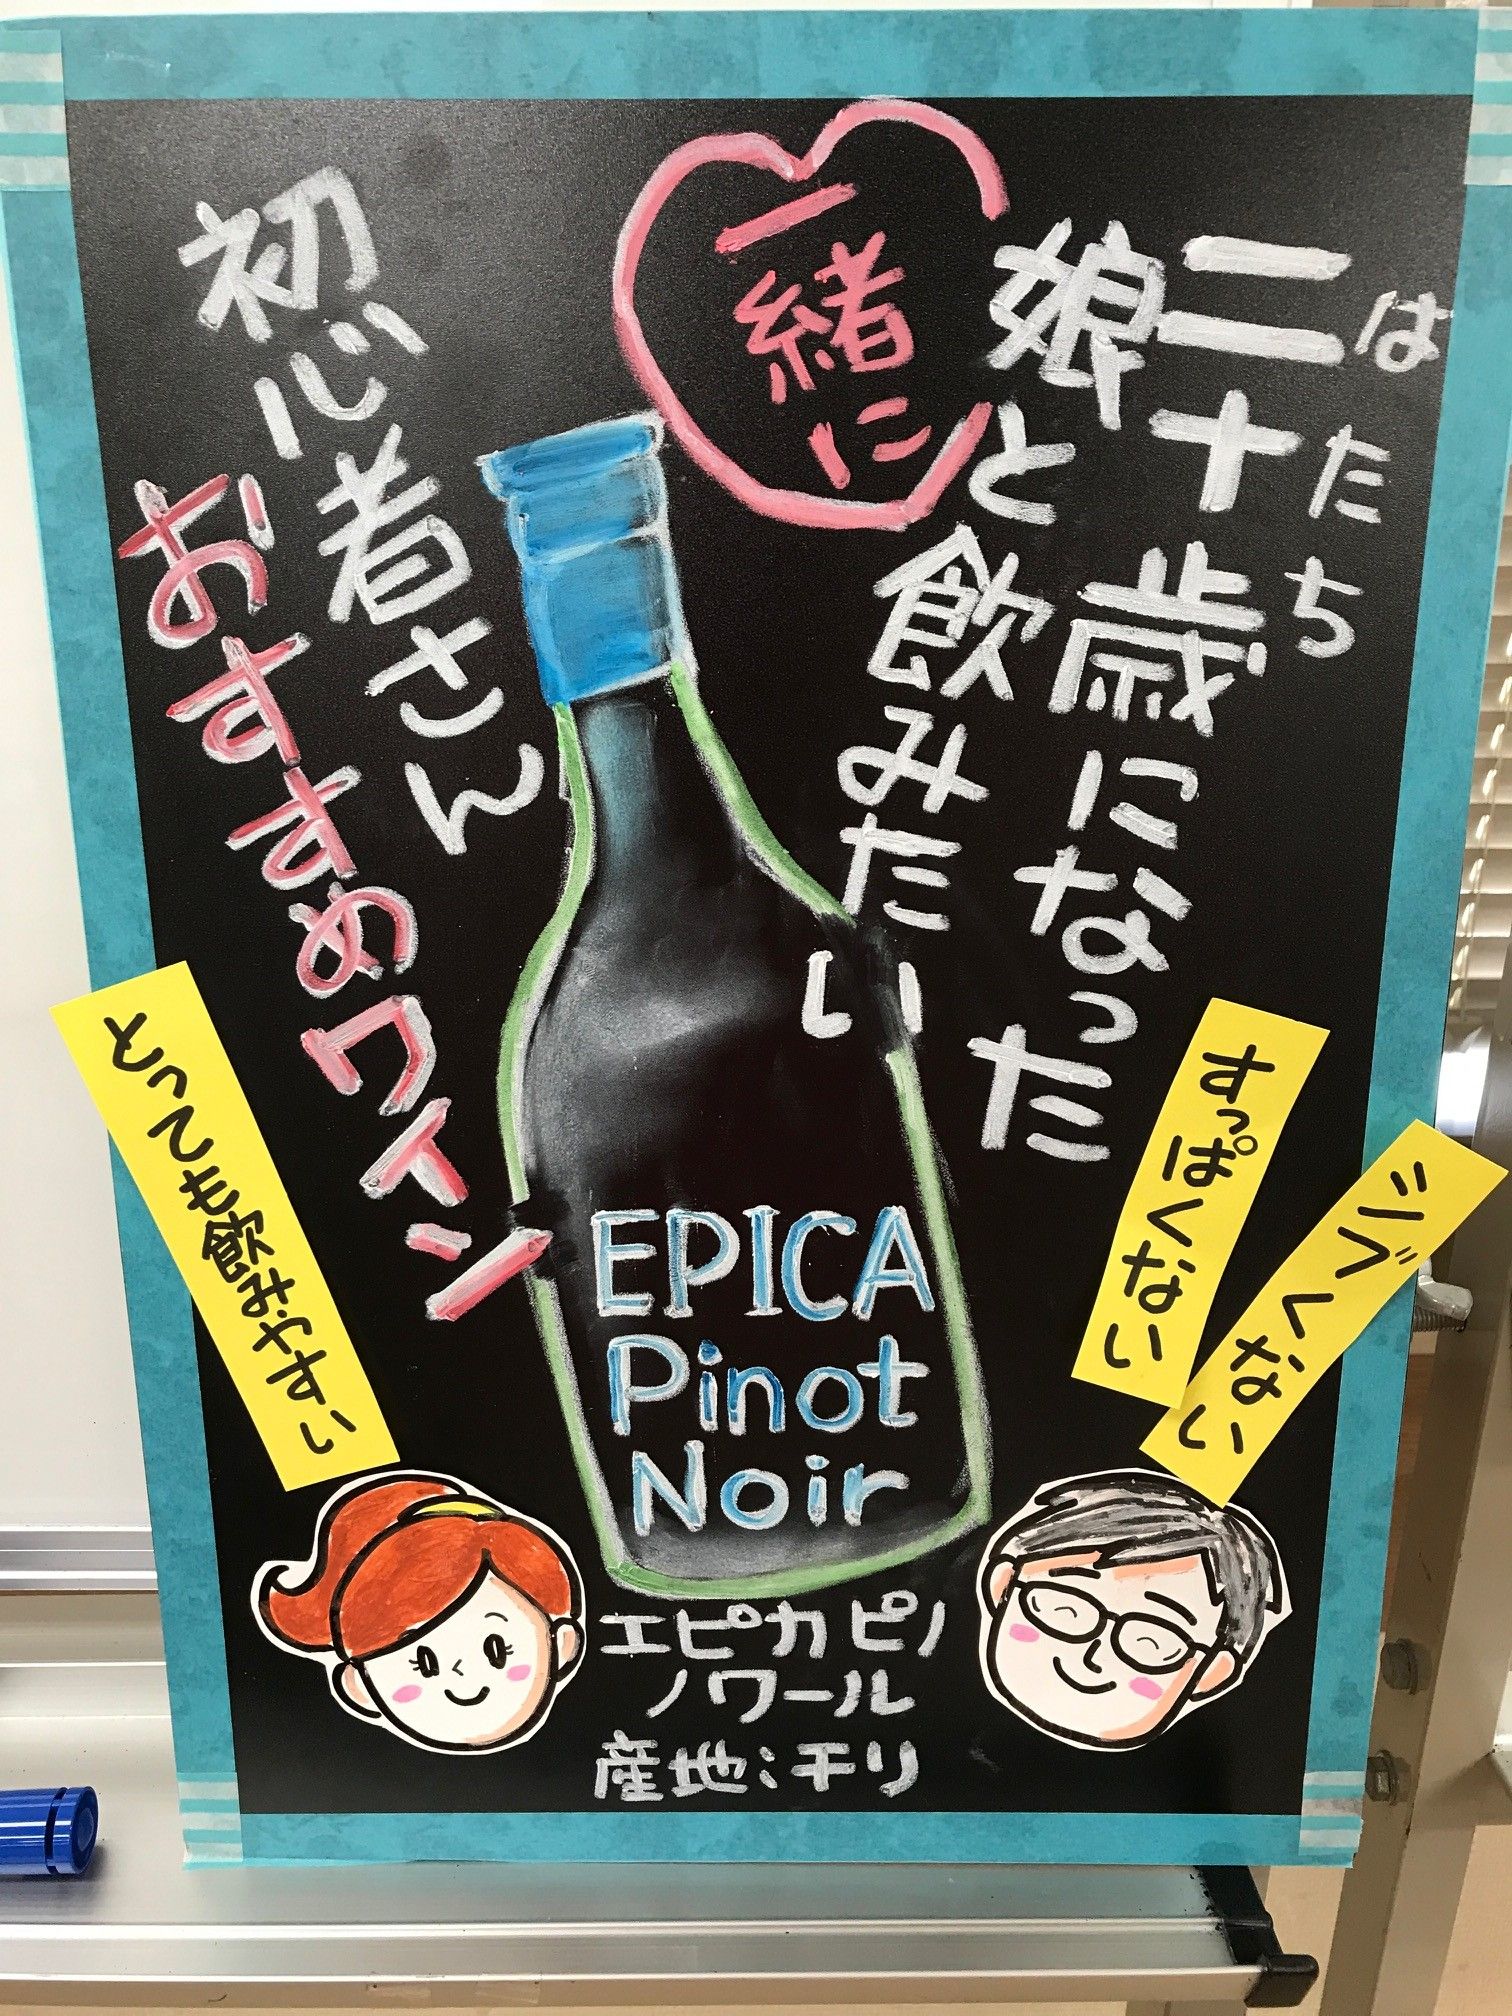 はたち
二十歳になった
娘と飲みたい
一緒に
初心者さん
おすすめワイン
とっても飲みやすい
すっぱくない
シブくない
EPICA
Pinot
Noir
エピカ ピノ
ノワール
産地:チリ